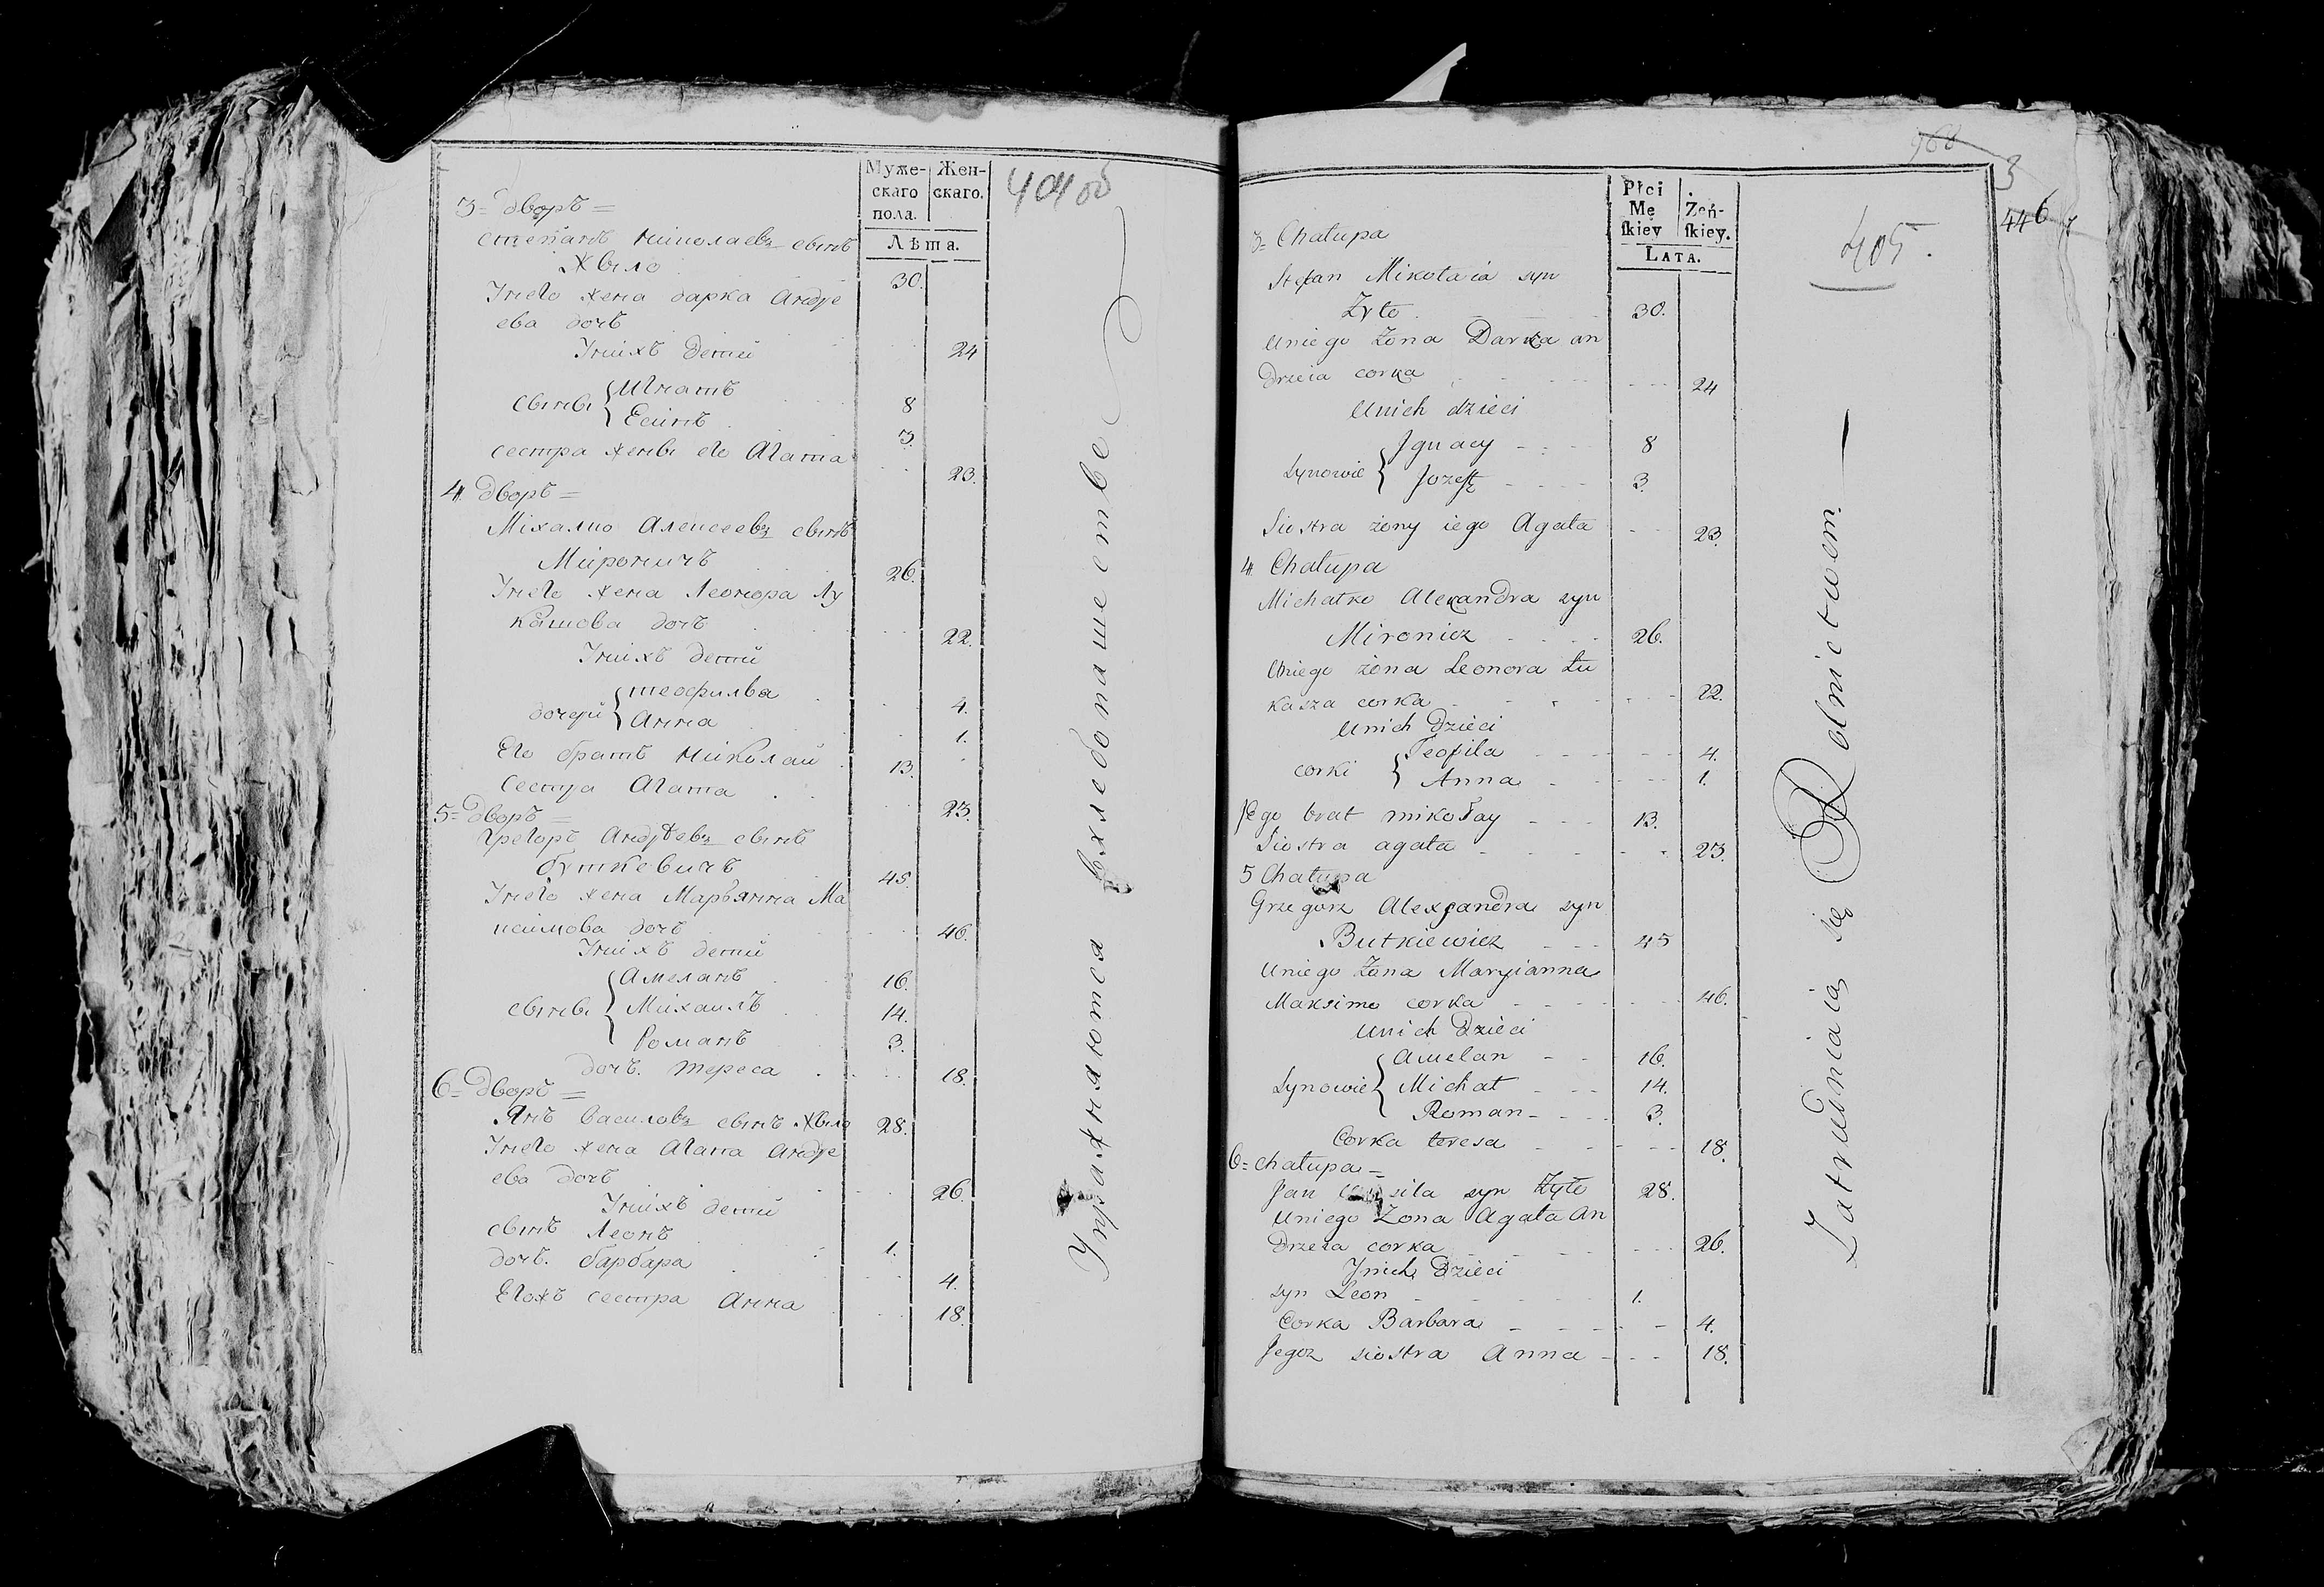 Муже-
скаго
пола.
Жен-
скаго.
Лѣта.
404 об
3= дворъ =
степанъ николаевъ сынъ
Жыло 30.
Унего жена дарка андре
ева дочь 24
Унихъ дети
сыны { Игнатъ 8
Есипъ 3.
сестра жены его Агата 23.
4. дворъ =
Михалко Алексеевъ сынъ
Мироничъ 26.
Унего жена Леонора Лу
кашова дочь 22.
Унихъ дети
дочери { теофилва 4.
Анна 1.
Его братъ николай 13.
сестра Агата 23.
5= дворъ =
Грегоръ андреевъ сынъ
буткевичъ 45.
Унего жена Марьянна Ма
ксимова дочь 46.
Унихъ дети
сыны { Амеланъ 16.
Михаилъ 14.
Романъ 3.
дочь. тереса 18.
6= дворъ =
Янъ василовъ сынъ Жыло 28.
Унего жена Агата андре
ева дочь 26.
Унихъ дети
сынъ Леонъ 1.
дочь. барбара 4.
Егожъ сестра Анна 18.
Упражняютса вхлебопашестве
Płci
Mę
skiey
Żeń-
skiey.
LATA.
405.
3
446
3= Chałupa
Stefan Mikołaia syn
Żyło 30.
Uniego Żona Darka an
drzeia corka 24
Unich dzieci
Synowie { Ignacy 8
Jozeff 3.
Siostra żony iego Agata 23.
4. Chałupa
Michałko Alexandra syn
Mironicz 26.
Uniego żona Leonora Łu
kasza corka 22.
Unich Dzieci
corki { Teofila 4.
Anna 1.
Jego brat mikołay 13.
Siostra agata 23.
5 Chałupa
Grzegorz Alexandra syn
Butkiewicz 45
Uniego Żona Maryianna
Maksima corka 46.
Unich Dzieci
Synowie { Amelan 16.
Michał 14.
Roman 3.
Corka teresa 18.
6= chałupa =
Jan syn Żyło 28.
Uniego Żona Agata An
drzeia corka 26.
Unich Dzieci
syn Leon 1.
Corka Barbara 4.
Jegoz siostra Anna 18.
Zatrudniaią się Rolnictwem.